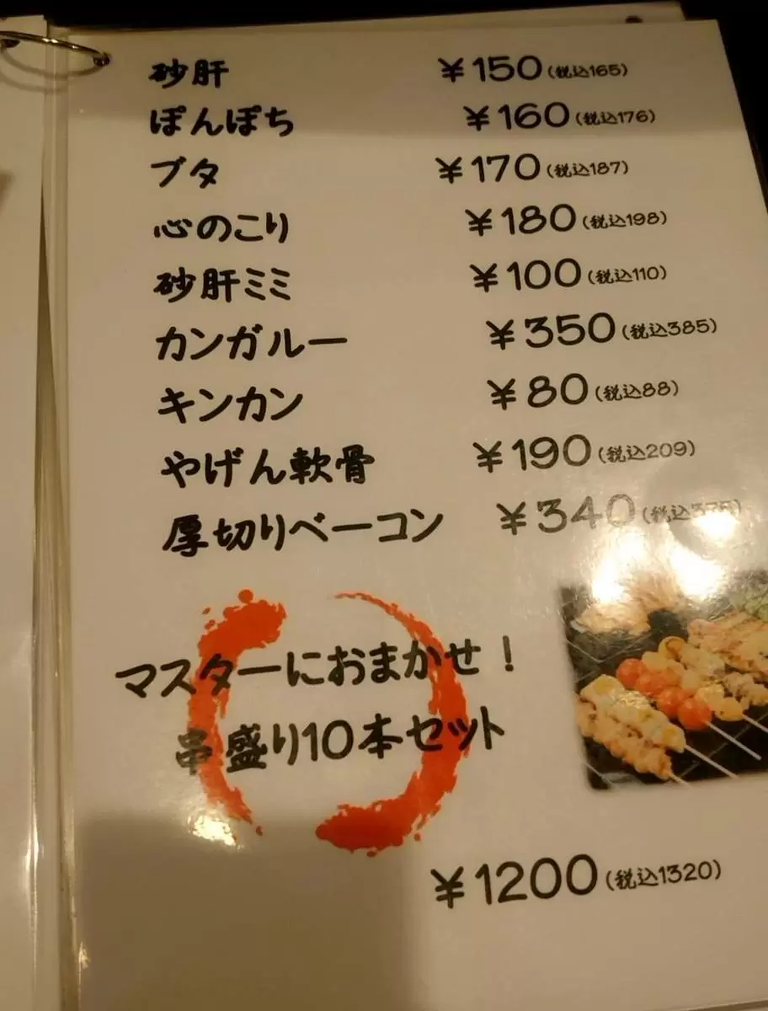 砂肝 ¥150(税込165)
ぽんぽち ¥160(税込176)
ブタ ¥170(税込187)
心のこり ¥180(税込198)
砂肝ミミ ¥100(税込110)
カンガルー ¥350(税込385)
キンカン ¥80(税込88)
やげん軟骨 ¥190(税込209)
厚切りベーコン ¥340
マスターにおまかせ!
串盛り10本セット
¥1200(税込1320)